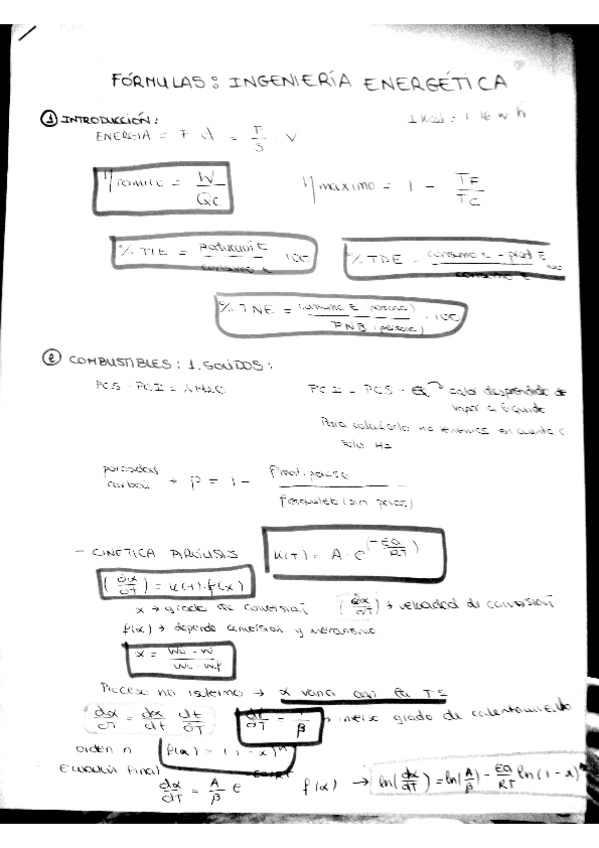 FÓRMULAS: INGENIERÍA ENERGÉTICA
① INTRODUCCIÓN:
1 Kcal = 1 16 w h
ENERGIA = F d = F/S · V
η termico = W/Qc
η maximo = 1 - TF/TC
% TIE = produccion E / consumo E · 100
% TDE = consumo E - prod E / consumo E · 100
% TNE = consumo E (per capita) / PNB (per capita) · 100
② COMBUSTIBLES: 1. SOLIDOS:
PCS - PCI = λ H2O
PCI = PCS - Q → calor desprendido de
vapor a liquido
Para calcularlo no tenemos en cuenta C
solo H2
porosidad
carbon → P = 1 - ρmat. poroso / ρesqueleto (sin poros)
- CINÉTICA PIRÓLISIS
k(T) = A · e^(-Ea/RT)
(dx/dT) = k(T) · f(x)
x → grado de conversion (dx/dT) → velocidad de conversion
f(x) → depende conversion y mecanismo
x = Wo - W / Wo - Wf
Proceso no isotermo → x varia con la T
dx/dT = dx/dt dt/dT
dt/dT = 1/β → inverso grado de calentamiento
orden n f(x) = (1 - x)^n
Ecuación final
dx/dT = A/β e^-Ea/RT f(x) → ln(dx/dT) = ln(A/β) - Ea/RT ln(1 - x)^n